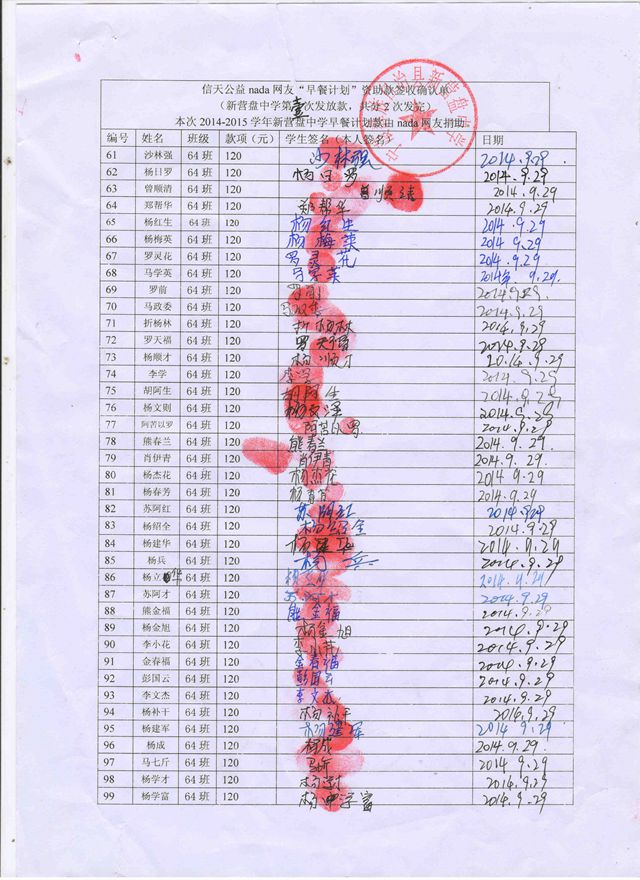 信天公益nada网友“早餐计划”资助款签收确认单
（新营盘中学第壹次发放款，共分2次发完）
本次2014-2015学年新营盘中学早餐计划款由nada网友捐助
编号 姓名 班级 款项（元） 学生签名（本人签名） 日期
61 沙林强 64班 120 沙林强 2014.9.29
62 杨日罗 64班 120 杨日罗 2014.9.29
63 曾顺清 64班 120 曾顺清 2014.9.29
64 郑帮华 64班 120 郑帮华 2014.9.29
65 杨红生 64班 120 杨红生 2014.9.29
66 杨梅英 64班 120 杨梅英 2014.9.29
67 罗灵花 64班 120 罗灵花 2014.9.29
68 马学英 64班 120 马学英 2014年9.29.
69 罗前 64班 120 2014.9.29
70 马政委 64班 120 2014.9.29
71 折杨林 64班 120 折杨林 2014.9.29
72 罗天福 64班 120 罗天福 2014.9.29
73 杨顺才 64班 120 杨顺才 2014.9.29
74 李学 64班 120 李学 2014.9.29
75 胡阿生 64班 120 胡阿生 2014.9.29
76 杨文则 64班 120 2014.9.29
77 阿苦以罗 64班 120 2014.9.29
78 熊春兰 64班 120 熊春兰 2014.9.29
79 肖伊青 64班 120 肖伊青 2014.9.29.
80 杨杰花 64班 120 杨杰花 2014.9.29
81 杨春芳 64班 120 杨春芳 2014.9.29
82 苏阿红 64班 120 苏阿红 2014.9.29
83 杨绍全 64班 120 2014.9.29
84 杨建华 64班 120 杨建华 2014.9.29
85 杨兵 64班 120 杨兵 2014.9.29
86 杨立华 64班 120 2014.9.29
87 苏阿才 64班 120 2014.9.29
88 熊金福 64班 120 熊金福 2014.9.29
89 杨金旭 64班 120 杨金旭 2014.9.29
90 李小花 64班 120 李小花 2014.9.29
91 金春福 64班 120 金春福 2014.9.29
92 彭国云 64班 120 彭国云 2014.9.29
93 李文杰 64班 120 李文杰 2014.9.29
94 杨补干 64班 120 2014.9.29
95 杨建军 64班 120 杨建军 2014.9.29
96 杨成 64班 120 杨成 2014.9.29.
97 马七斤 64班 120 2014.9.29
98 杨学才 64班 120 杨学才 2014.9.29
99 杨学富 64班 120 2014.9.29